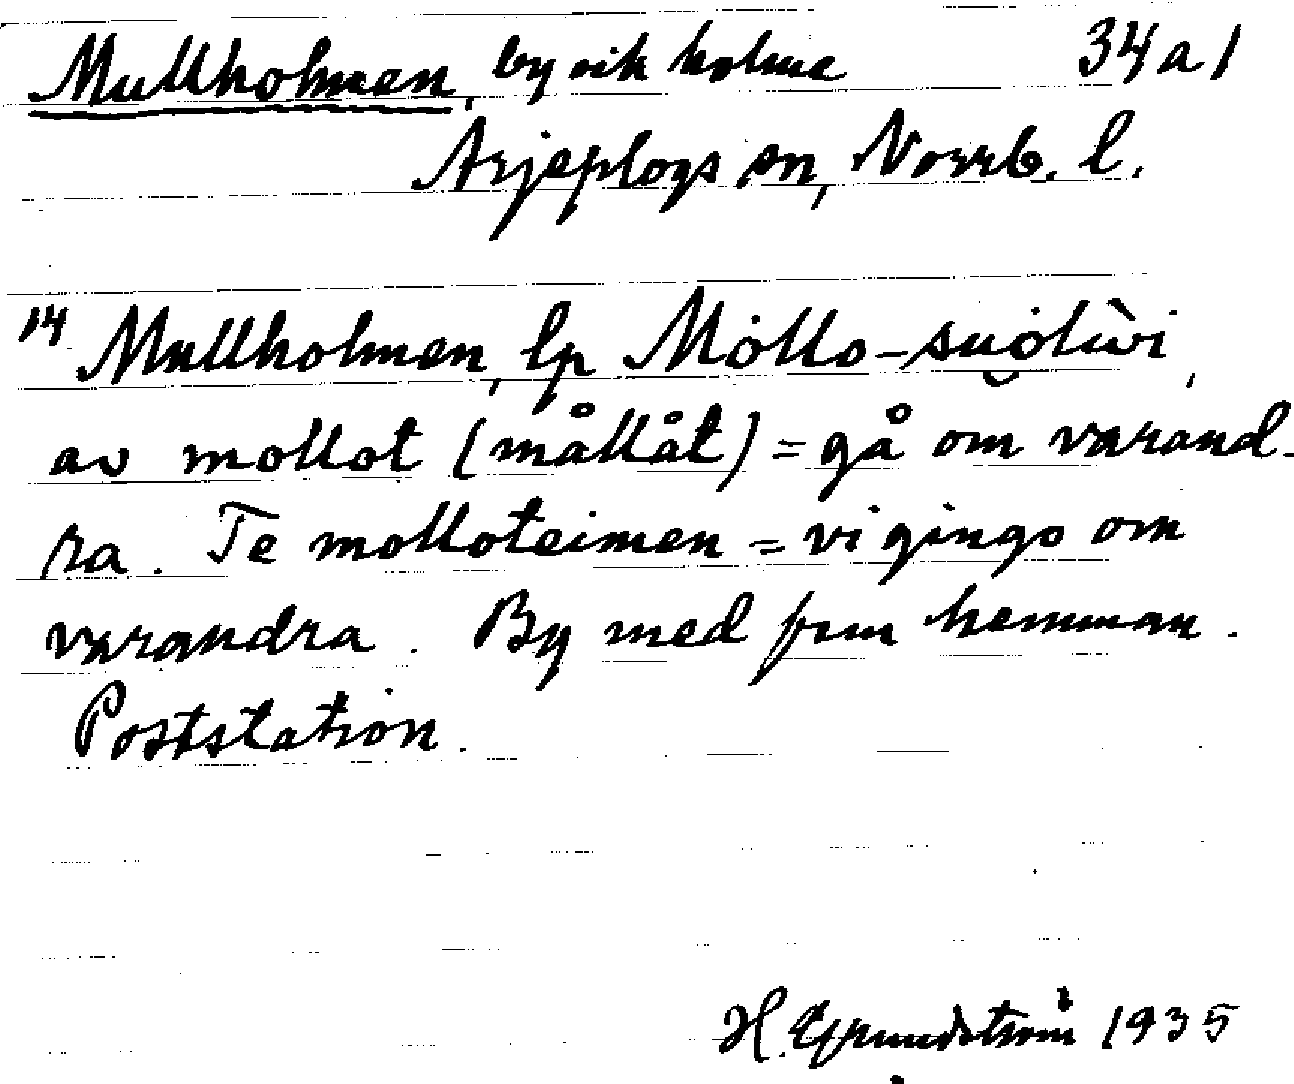 Mullholmen, by och holme 34 a 1
Arjeplogs sn, Norrb. l.
14 Mullholmen, lp Mȯllo-suo̭lùvi,
av mollot (mållåt) = gå om varand-
ra. Te molloteimen = vi gingo om
varandra. By med fem hemman.
Poststation.
H. Grundström 1935